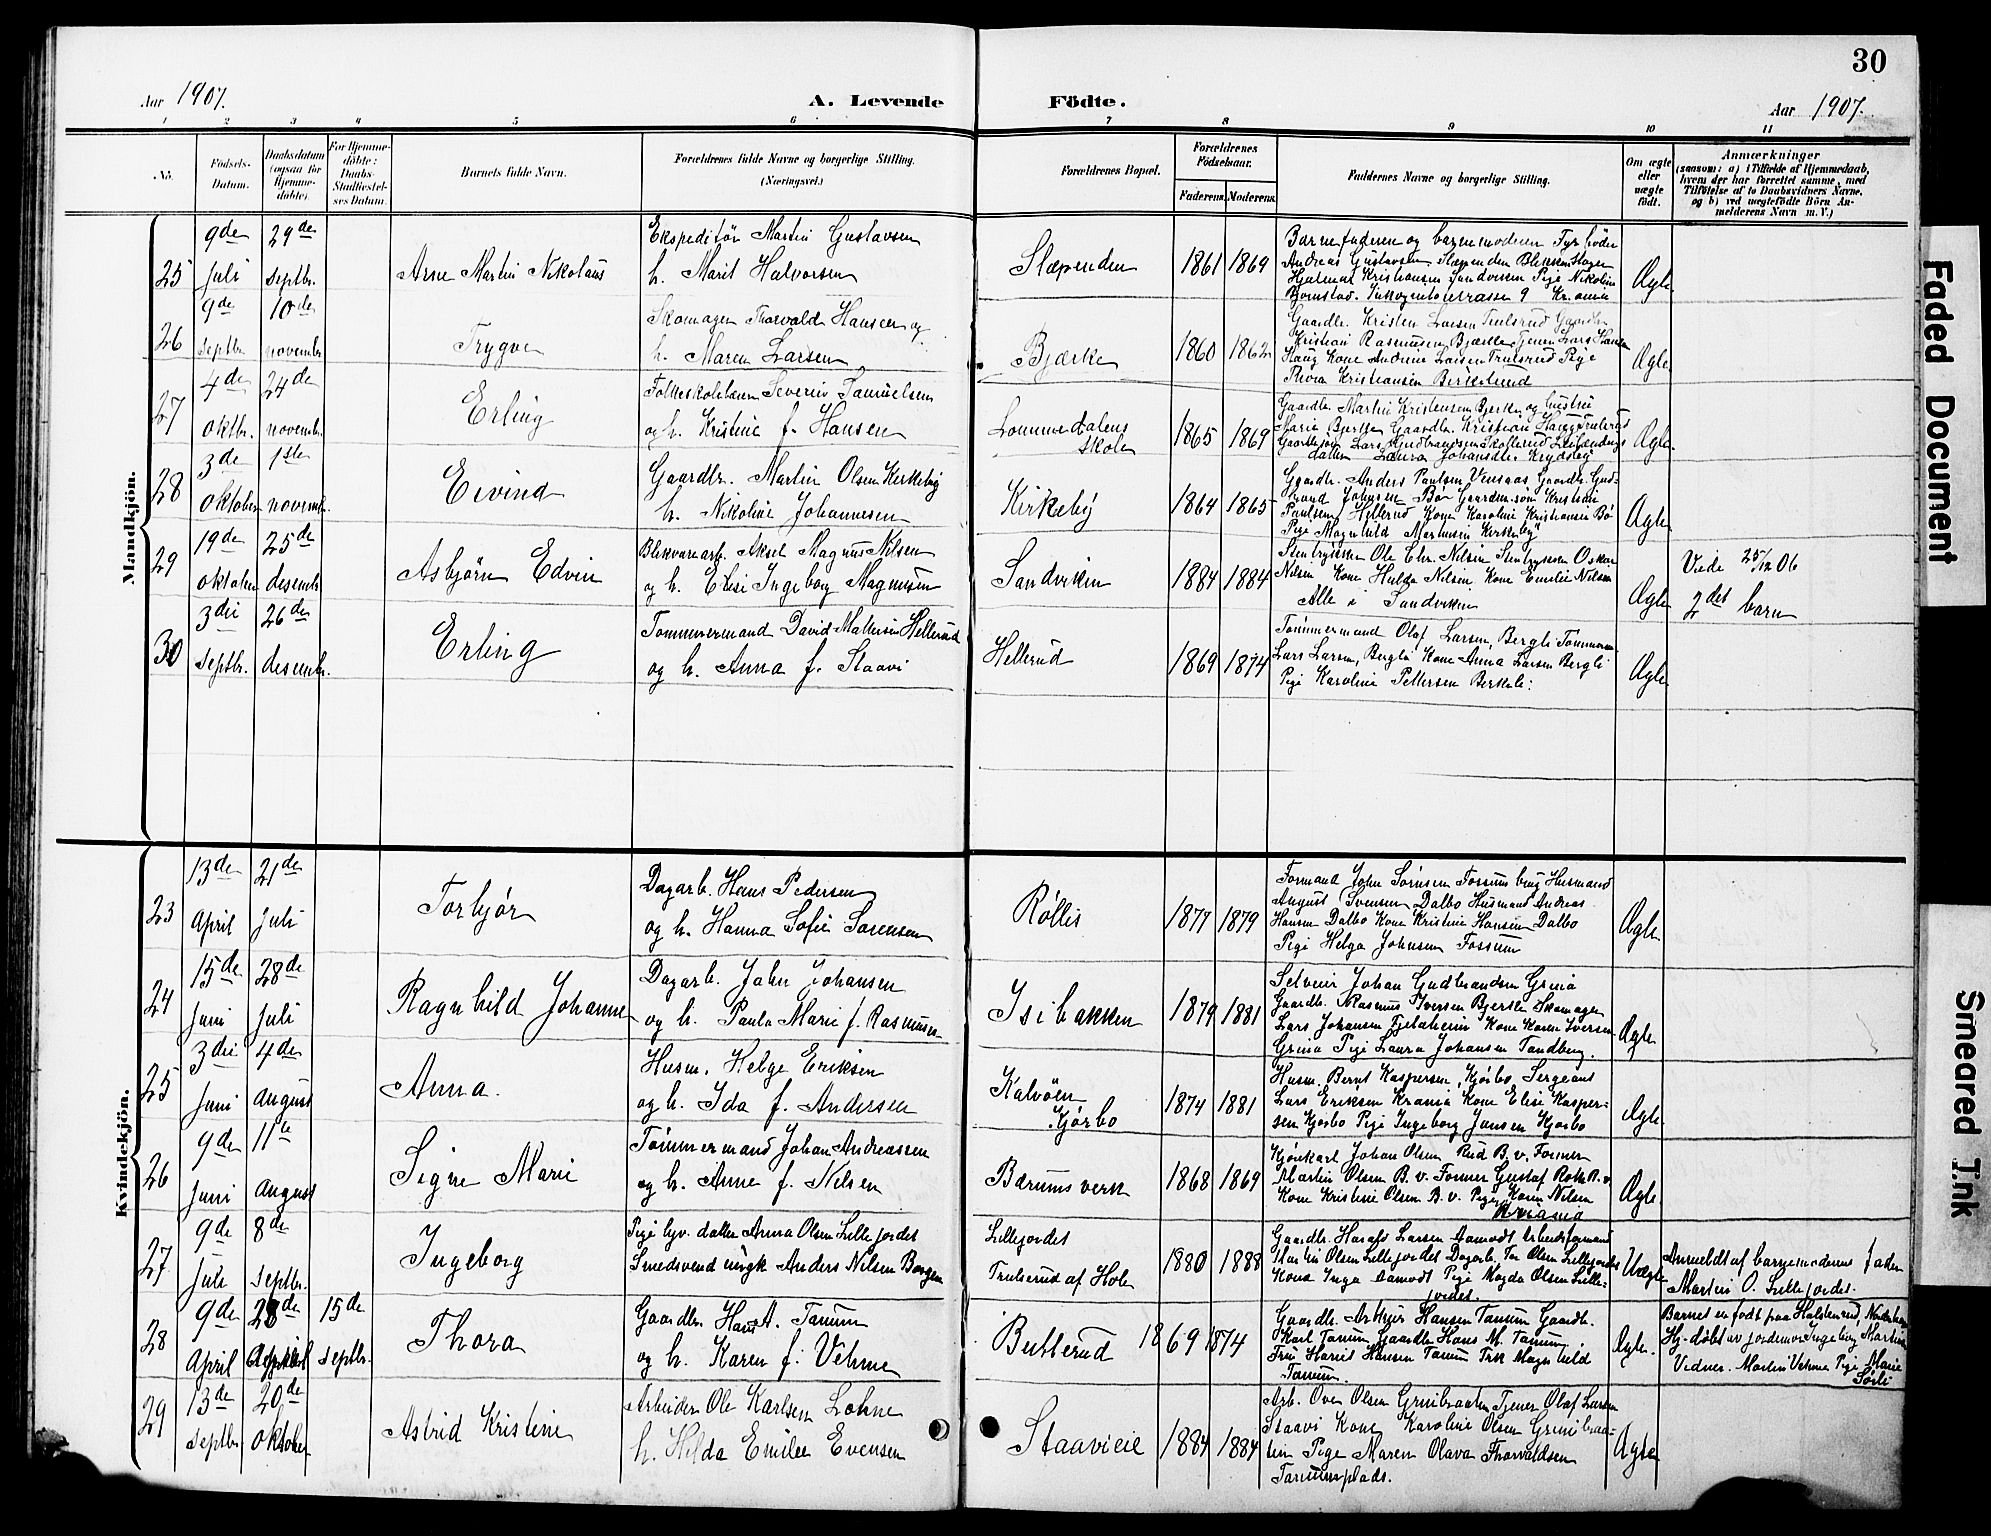 30
Aar 1907.
A. Levende
Födte.
Aar 1907.
1 2 3 4 5 6 7 8 9 10 11
No.
Födsels-
Datum.
Daabsdatum
(ogsaa for
Hjemme-
döbte).
For Hjemme-
döbte:
Daabs-
Stadfæstel-
ses Datum.
Barnets fulde Navn.
Forældrenes fulde Navne og borgerlige Stilling.
(Næringsvei.)
Forældrenes Bopæl.
Forældrenes
Födselsaar.
Faderens.
Moderens.
Faddernes Navne og borgerlige Stilling.
Om ægte
eller
uægte
födt.
Anmærkninger
(saasom: a) i Tilfælde af Hjemmedaab,
hvem der har forrettet samme, med
Tilföielse af to Daabsvidners Navne,
og b) ved uægtefödte Börn An-
melderens Navn m. V.)
Mandkjön.
25
9de
Juli
29de
Septbr.
Arne Martin Nikolaus
Ekspeditør Martin Gustavsen
h. Marit Halvorsen
Slæpenden
1861 1869
Barnefaderen og barnemoderen Fyrbøder
Andreas Gustavsen Slæpenden Blikkenslager
Hjalmar Kristiansen Sandviken Pige Nikoline
Bjørnstad. Inkognitoterrassen 9 Kr.ania
Ægte
26
9de
Septbr.
10de
novembr.
Trygve
Skomager Thorvald Hansen og
h. Maren Larsen
Bjærke
1860 1862
Gaardbr. Kristen Larsen Trulsrud Gaardbr.
Kristian Rasmussen Bjærke Tjener Lars Hansen
Haug Kone Andrine Larsen Trulsrud Pige
Thora Kristiansen Berkelund
Ægte
27
4de
Oktbr.
24de
novembr.
Erling
Folkeskolelærer Severin Samuelsen
og h. Kristine f. Hansen
Lommedalens
skole
1865 1869
Gaardbr. Martin Kristensen Bjerke og hustru
Marie Bjerke Gaardbr. Kristian
Gaardbr.søn Lars Gudbrandsen Skollerud
datter Laura Johansdtr. Krydsby
Ægte
28
3de
Oktober
1ste
novemb.
Eivind
Gaardbr. Martin Olsen Kirkeby
h. Nikoline Johannesen
Kirkeby
1864 1865
Gaardbr. Anders Paulsen Vensaas Gaardbr. Gud-
brand Johnsen Bø Gaardm.søn Kristian
Paulsen Hellerud Kone Karoline Kristiansen Bø
Pige Magnhild Martinsen Kirkeby
Ægte
29
19de
Oktober
25de
desembr
Asbjørn Edvin
Blikvarearb. Aksel Magnus Nilsen
og h. Elise Ingeborg Magnusen
Sandviken
1884 1884
Stenbrydder Ole Chr. Nilsen Stenbrydder Oskar
Nilsen Kone Hulda Nilsen Kone Emilie Nilsen
Alle i Sandviken
Ægte
Viede 25/12 06
2det barn
30
3die
Septbr.
26de
desembr.
Erling
Tømmermand David Mathisen Hellerud
og h. Anna f. Staavi
Hellerud
1869 1874
Tømmermand Olaf Larsen, Bergli Tømmerm.
Lars Larsen, Bergli Kone Anna Larsen Bergli
Pige Karoline Pettersen Berkeli.
Ægte
Kvindekjön.
23
13de
April
21de
Juli
Torbjør
Dagarb. Hans Pedersen
og h. Hanna Sofie Sørensen
Røllis
1877 1879
Formand John Sørnsen Fossum brug Husmand
August Svensen Dalbo Husmand Andreas
Hansen Dalbo Kone Kristine Hansen Dalbo
Pige Helga Johnsen Fossum
Ægte
24
15de
Juni
28de
Juli
Ragnhild Johanne
Dagarb. John Johansen
og h. Paula Marie f. Rasmusen
Isibakken
1879 1881
Selveier Johan Gudbrandsen Grina
Gaardbr. Rasmus Iversen Bjerke Skomager
Lars Johansen Fjelaheim Kone Karen Iversen
Grina Pige Laura Johansen Tandberg.
Ægte
25
3die
Juni
4de
August
Anna.
Husm. Helge Eriksen
og h. Ida f. Andersen
Kalvøen
Kjørbo
1874 1881
Husm. Bernt Kaspersen, Kjørbo Sergeant
Lars Eriksen Krania Kone Elise Kasper-
sen Kjørbo Pige Ingeborg Jansen Kjørbo
Ægte
26
9de
Juni
11te
August
Signe Marie
Tømmermand Johan Andreassen
og h. Anne f. Nilsen
Bærums verk
1868 1869
Kjørekarl Johan Olsen Rud B. v. Former
Martin Olsen B. v. Former Gustaf Roth B. v
Kone Kristine Olsen B. v. Pige Karen Nilsen
Krania
Ægte
27
9de
Juli
8de
Septbr.
Ingeborg
Pige hjv. datter Anna Olsen Lillejordet
Smedsvend ungk Anders Nilsen Borgen
Lillejordet
Trulserud af Hole
1880 1888
Gaardbr. Harald Larsen Aamodt Arbeidsformand
Martin Olsen Lillejordet Dagarb. Tor Olsen Lillejordet
Kone Inga Aamodt Pige Magda Olsen Lille-
jordet.
Uægte
Anmeldt af barnemoderens fader
Martin O. Lillejordet.
28
9de
April
28de
April
15de
Septbr.
Thora
Gaardbr. Hans A. Tanum
og h. Karen f. Velme
Butterud
1869 1874
Gaardbr. Asbjør Hansen Tanum Gaardbr.
Karl Tanum Gaardbr Hans M. Tanum
Fru Harriet Hansen Tanum Frk Magnhild
Tanum.
Ægte.
Barnet er født paa
Hj-døbt av jordemor Ingeborg Martins
Vidner. Martin Velme Pige Marie
Sørli
29
13de
Septbr
20de
Oktober
Astrid Kristine
Arbeider Ole Karlsen Lohne
h. Hilda Emilie Evensen
Staavieie
1884 1884
Arb. Over Olsen Grinibraaten Tjener Olaf Larsen
Staavi Kone Karoline Olsen Grinibraa-
ten Pige Maren Olava Thorvaldsen
Tanumsplads.
Ægte
Faded Document
Smeared Ink